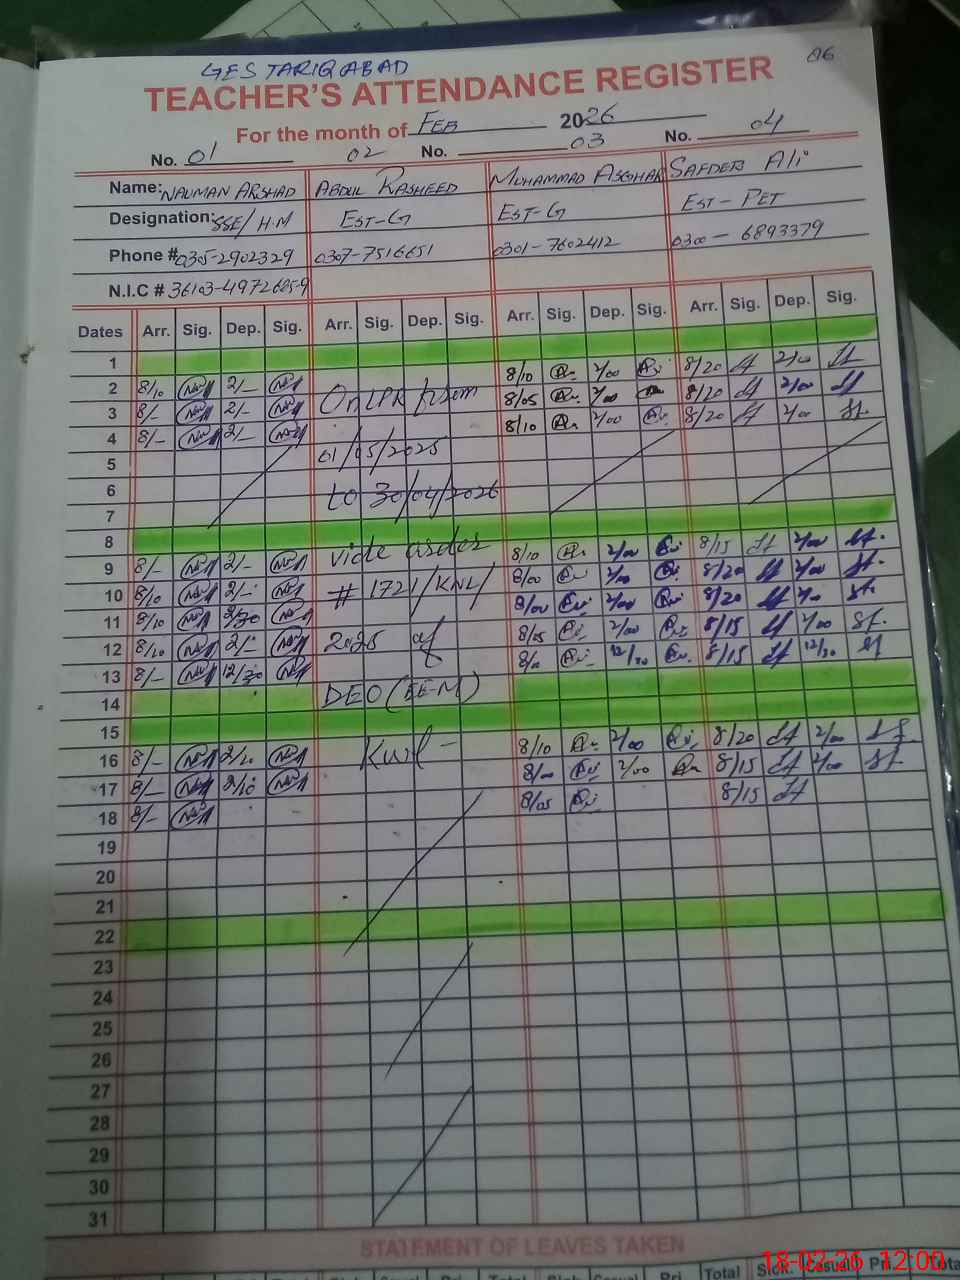 06
GES TARIQABAD
TEACHER'S ATTENDANCE REGISTER
For the month of FEB 2026
No. 01 02 No. 03 No. 04
Name: NAUMAN ARSHAD ABDUL RASHEED MUHAMMAD ASGHAR SAFDER Ali
Designation: SSE/H.M EST-G EST-G EST-PET
Phone # 0305-2902329 0307-7516651 0301-7602412 0300-6893379
N.I.C #
Dates Arr. Sig. Dep. Sig. Arr. Sig. Dep. Sig. Arr. Sig. Dep. Sig. Arr. Sig. Dep. Sig.
1
2 8/10 2/- On LPR from 8/10 2/00 8/20 2/00
3 8/- 2/- 8/05 2/00 8/20 2/00
4 8/- 2/- 01/05/2025 8/10 2/00 8/20 2/00
5
6 to 30/04/2026
7
8 vide order
9 8/- 2/- 8/10 2/00 8/15 2/00
10 8/10 2/- # 1721/KNL/ 8/00 2/00 8/20 2/00
11 8/10 2/30 8/00 2/00 8/20 2/00
12 8/10 2/- 2025 of 8/05 2/00 8/15 2/00
13 8/- 12/30 8/- 12/30 8/15 12/30
14 DEO (EE-M)
15
16 8/- 2/10 KWL 8/10 2/00 8/20 2/00
17 8/- 2/10 8/00 2/00 8/15 2/00
18 8/- 8/05 8/15
19
20
21
22
23
24
25
26
27
28
29
30
31
STATEMENT OF LEAVES TAKEN
18-02-26 12:00